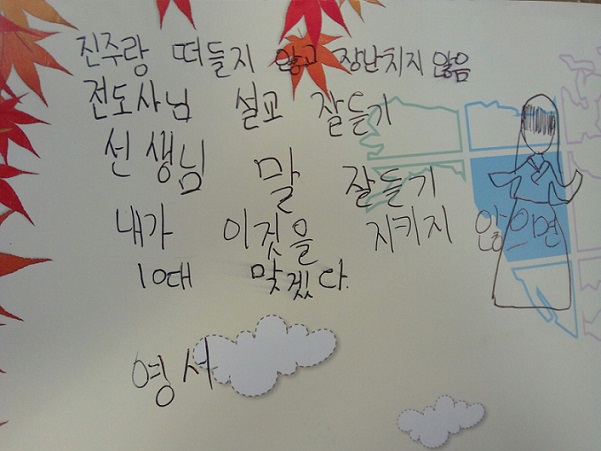 진주랑 떠들지 않고 장난치지 않음
전도사님 설교 잘듣기
선생님 말 잘듣기
내가 이것을 지키지 않으면
10대 맞겠다.
영서